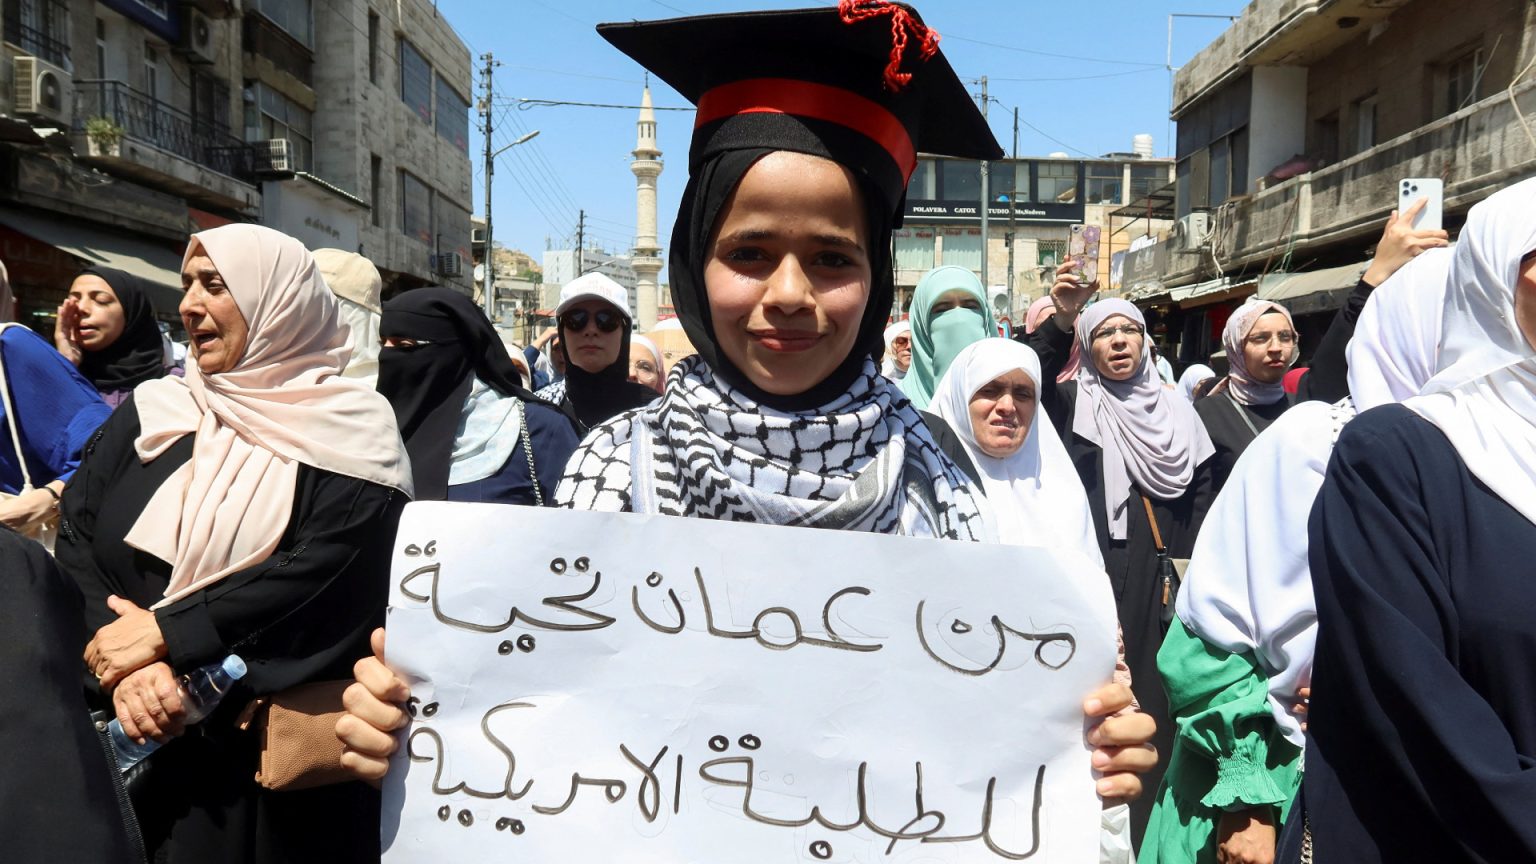 POLAVERA CATOX STUDIO
من عمان تحية
للطلبنة الامريكية